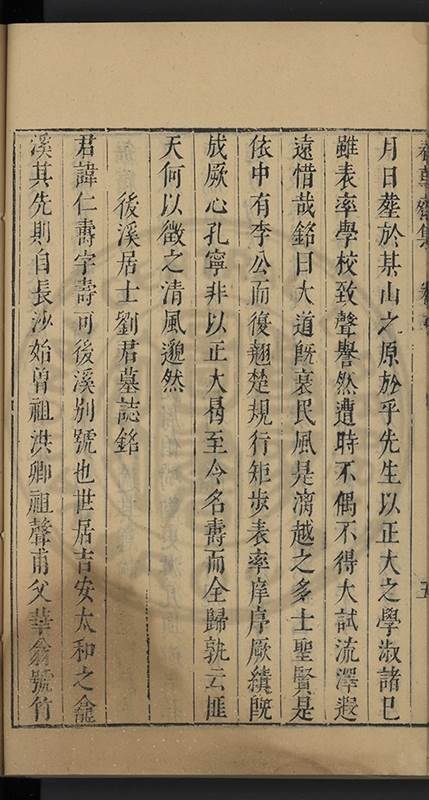 月日塟於某山之原於乎先生以正大之學淑諸已
雖表率學校致聲譽然遭時不偶不得大試流澤遐
遠惜哉銘曰大道旣衰民風是漓越之多士聖賢是
依中有李公而復翹楚規行矩步表率庠序厥績旣
成厥心孔寧非以正大曷至今名壽而全歸孰云匪
天何以徵之清風邈然
後溪居士劉君墓誌銘
君諱仁壽字壽可後溪别號也世居吉安太和之龕
溪其先則自長沙始曾祖洪卿祖聲甫父華翁號竹